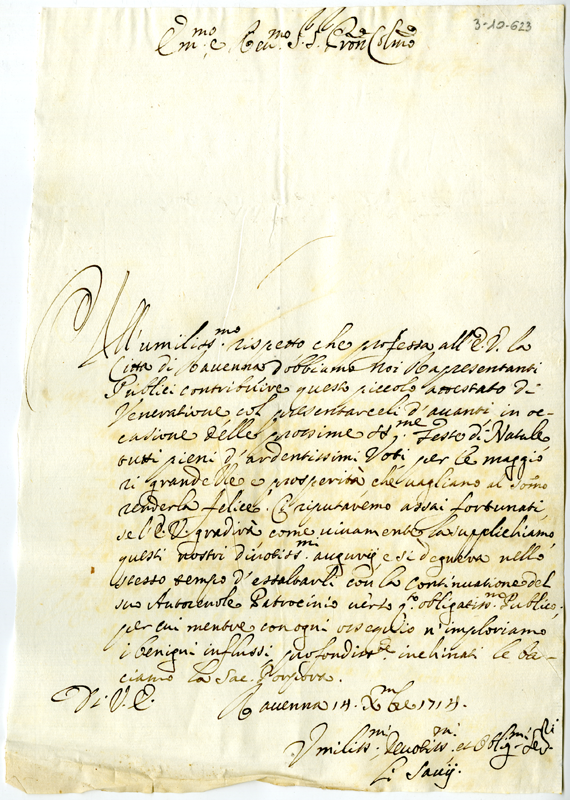 3-10-623
Em.mo e Reu.mo S.S. Pron Colmo
All'umiliss.mo rispetto che professa all'E.V. la
Città di Rauenna dobbiamo noi Rapresentanti
Publici contribuire questo piccolo attestato di
Veneratione col presentarceli d'auanti in oc-
casione delle prossime SS.me Feste di Natale
tutti pieni d'ardentissimi Voti per le maggio-
ri grandezze e prosperità che uagliano al somo
renderla felice. Ci riputaremo assai fortunati,
se l'E.V. gradirà come uiuamente la supplichiamo
questi nostri diuotiss.mi augurij, e si degnerà nello
stesso tempo d'essaltarli con la continuatione del
suo Autoreuole Patrocinio uerso q.to obligatiss.mo Publico,
per cui mentre con ogni ossequio n'imploriamo
i benigni influssi profondiss.te inchinati le ba-
ciamo la Sac. Porpora.
Di V.E.
Rauenna 14. Xmbre 1714.
Vmiliss.mi Deuotiss.mi et Oblig.mi Ser.ri
Li Sauij.